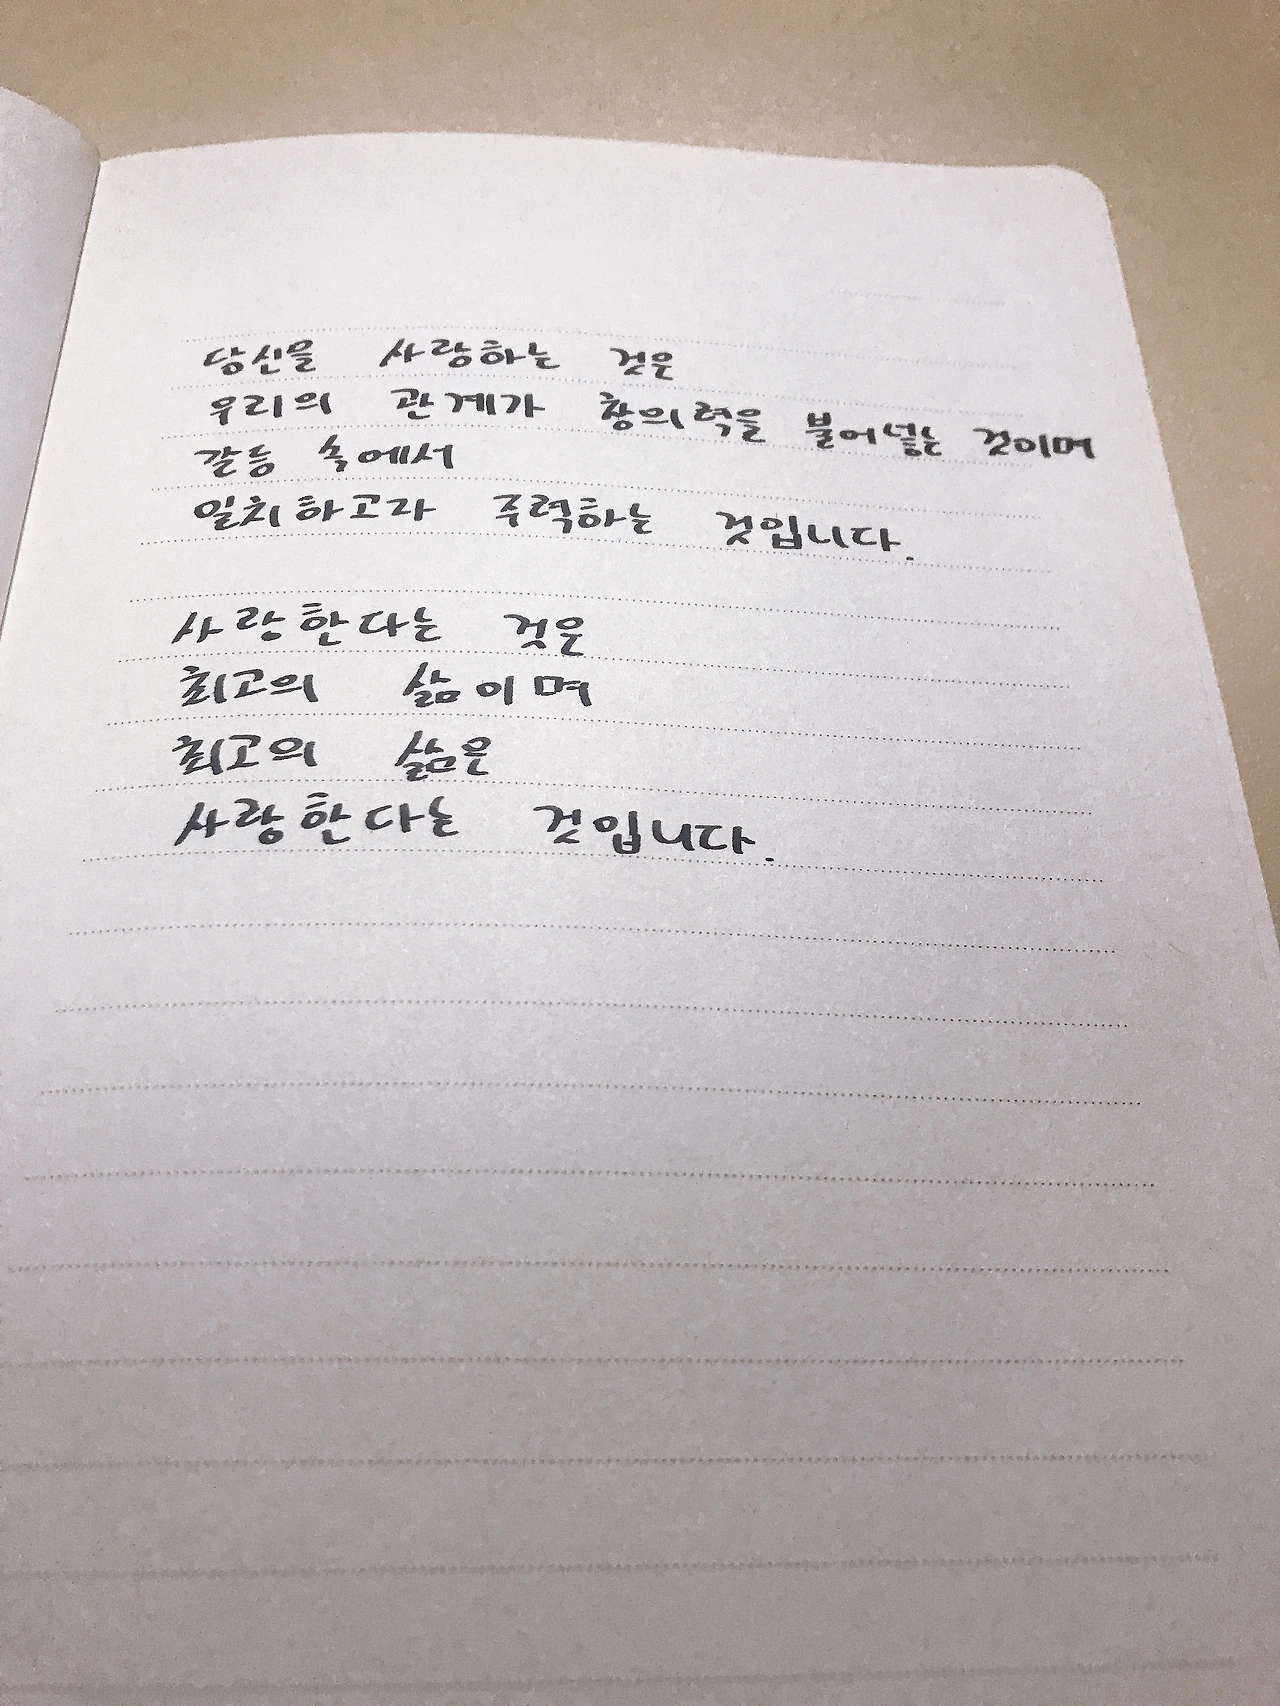 당신을 사랑하는 것은
우리의 관계가 창의력을 불어넣는 것이며
갈등 속에서
일치하고자 주력하는 것입니다.
사랑한다는 것은
최고의 삶이며
최고의 삶은
사랑한다는 것입니다.